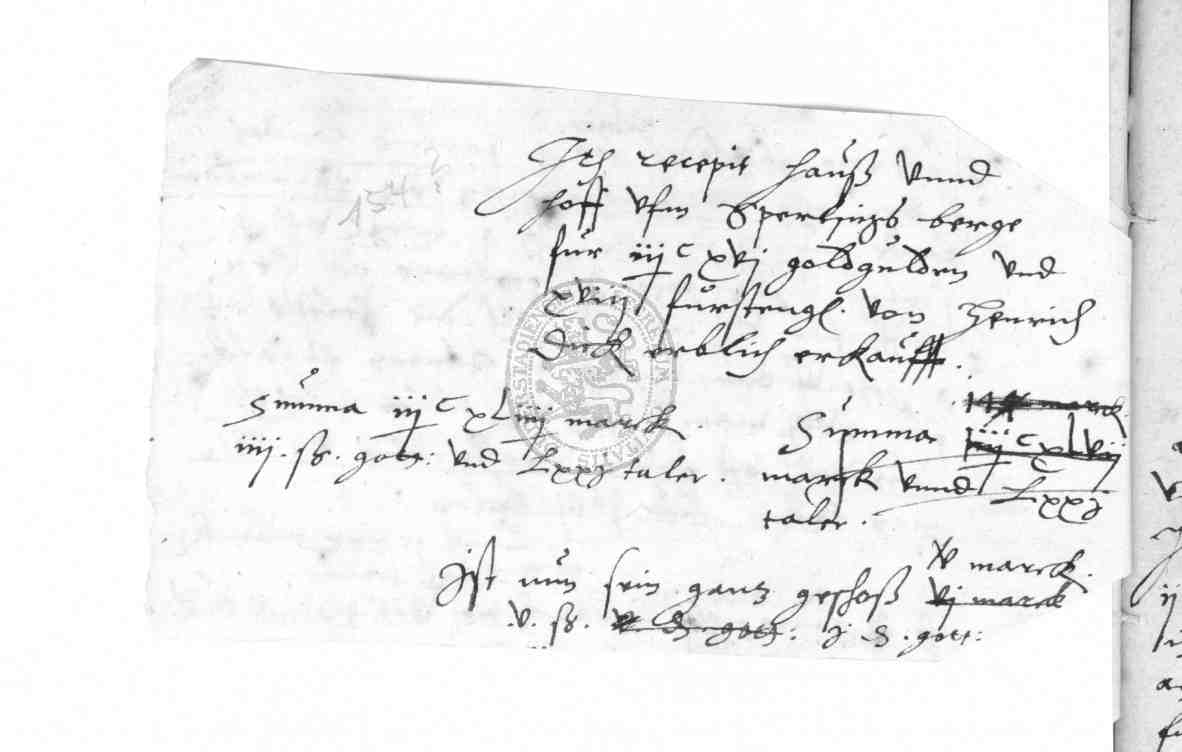 1542
Ite(m) recepit hauß vnnd
hoff vfm Sperlings berge
fur iijc xvj goldgulden vnd
xviij furstengl. von Henrich
Dick erblich erkaufft.
Summa iijc xLiiij marck
iiij. ß. gott: vnd Lxxj taler.
Summa iiijc xlvij
marck vnnd Lxxj
taler.
x marck.
Ist nun sein gantz geschoß vj marck
v. ß. gott: j d. gott: